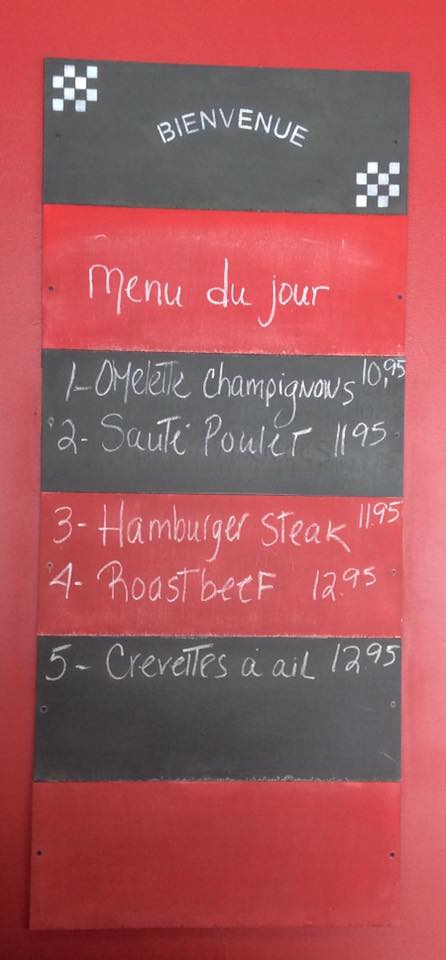 BIENVENUE
Menu du jour
1- Omelette Champignons 10,95
2- Sauté Poulet 11 95
3- Hamburger Steak 11.95
4- Roast beef 12.95
5- Crevettes à ail 12.95